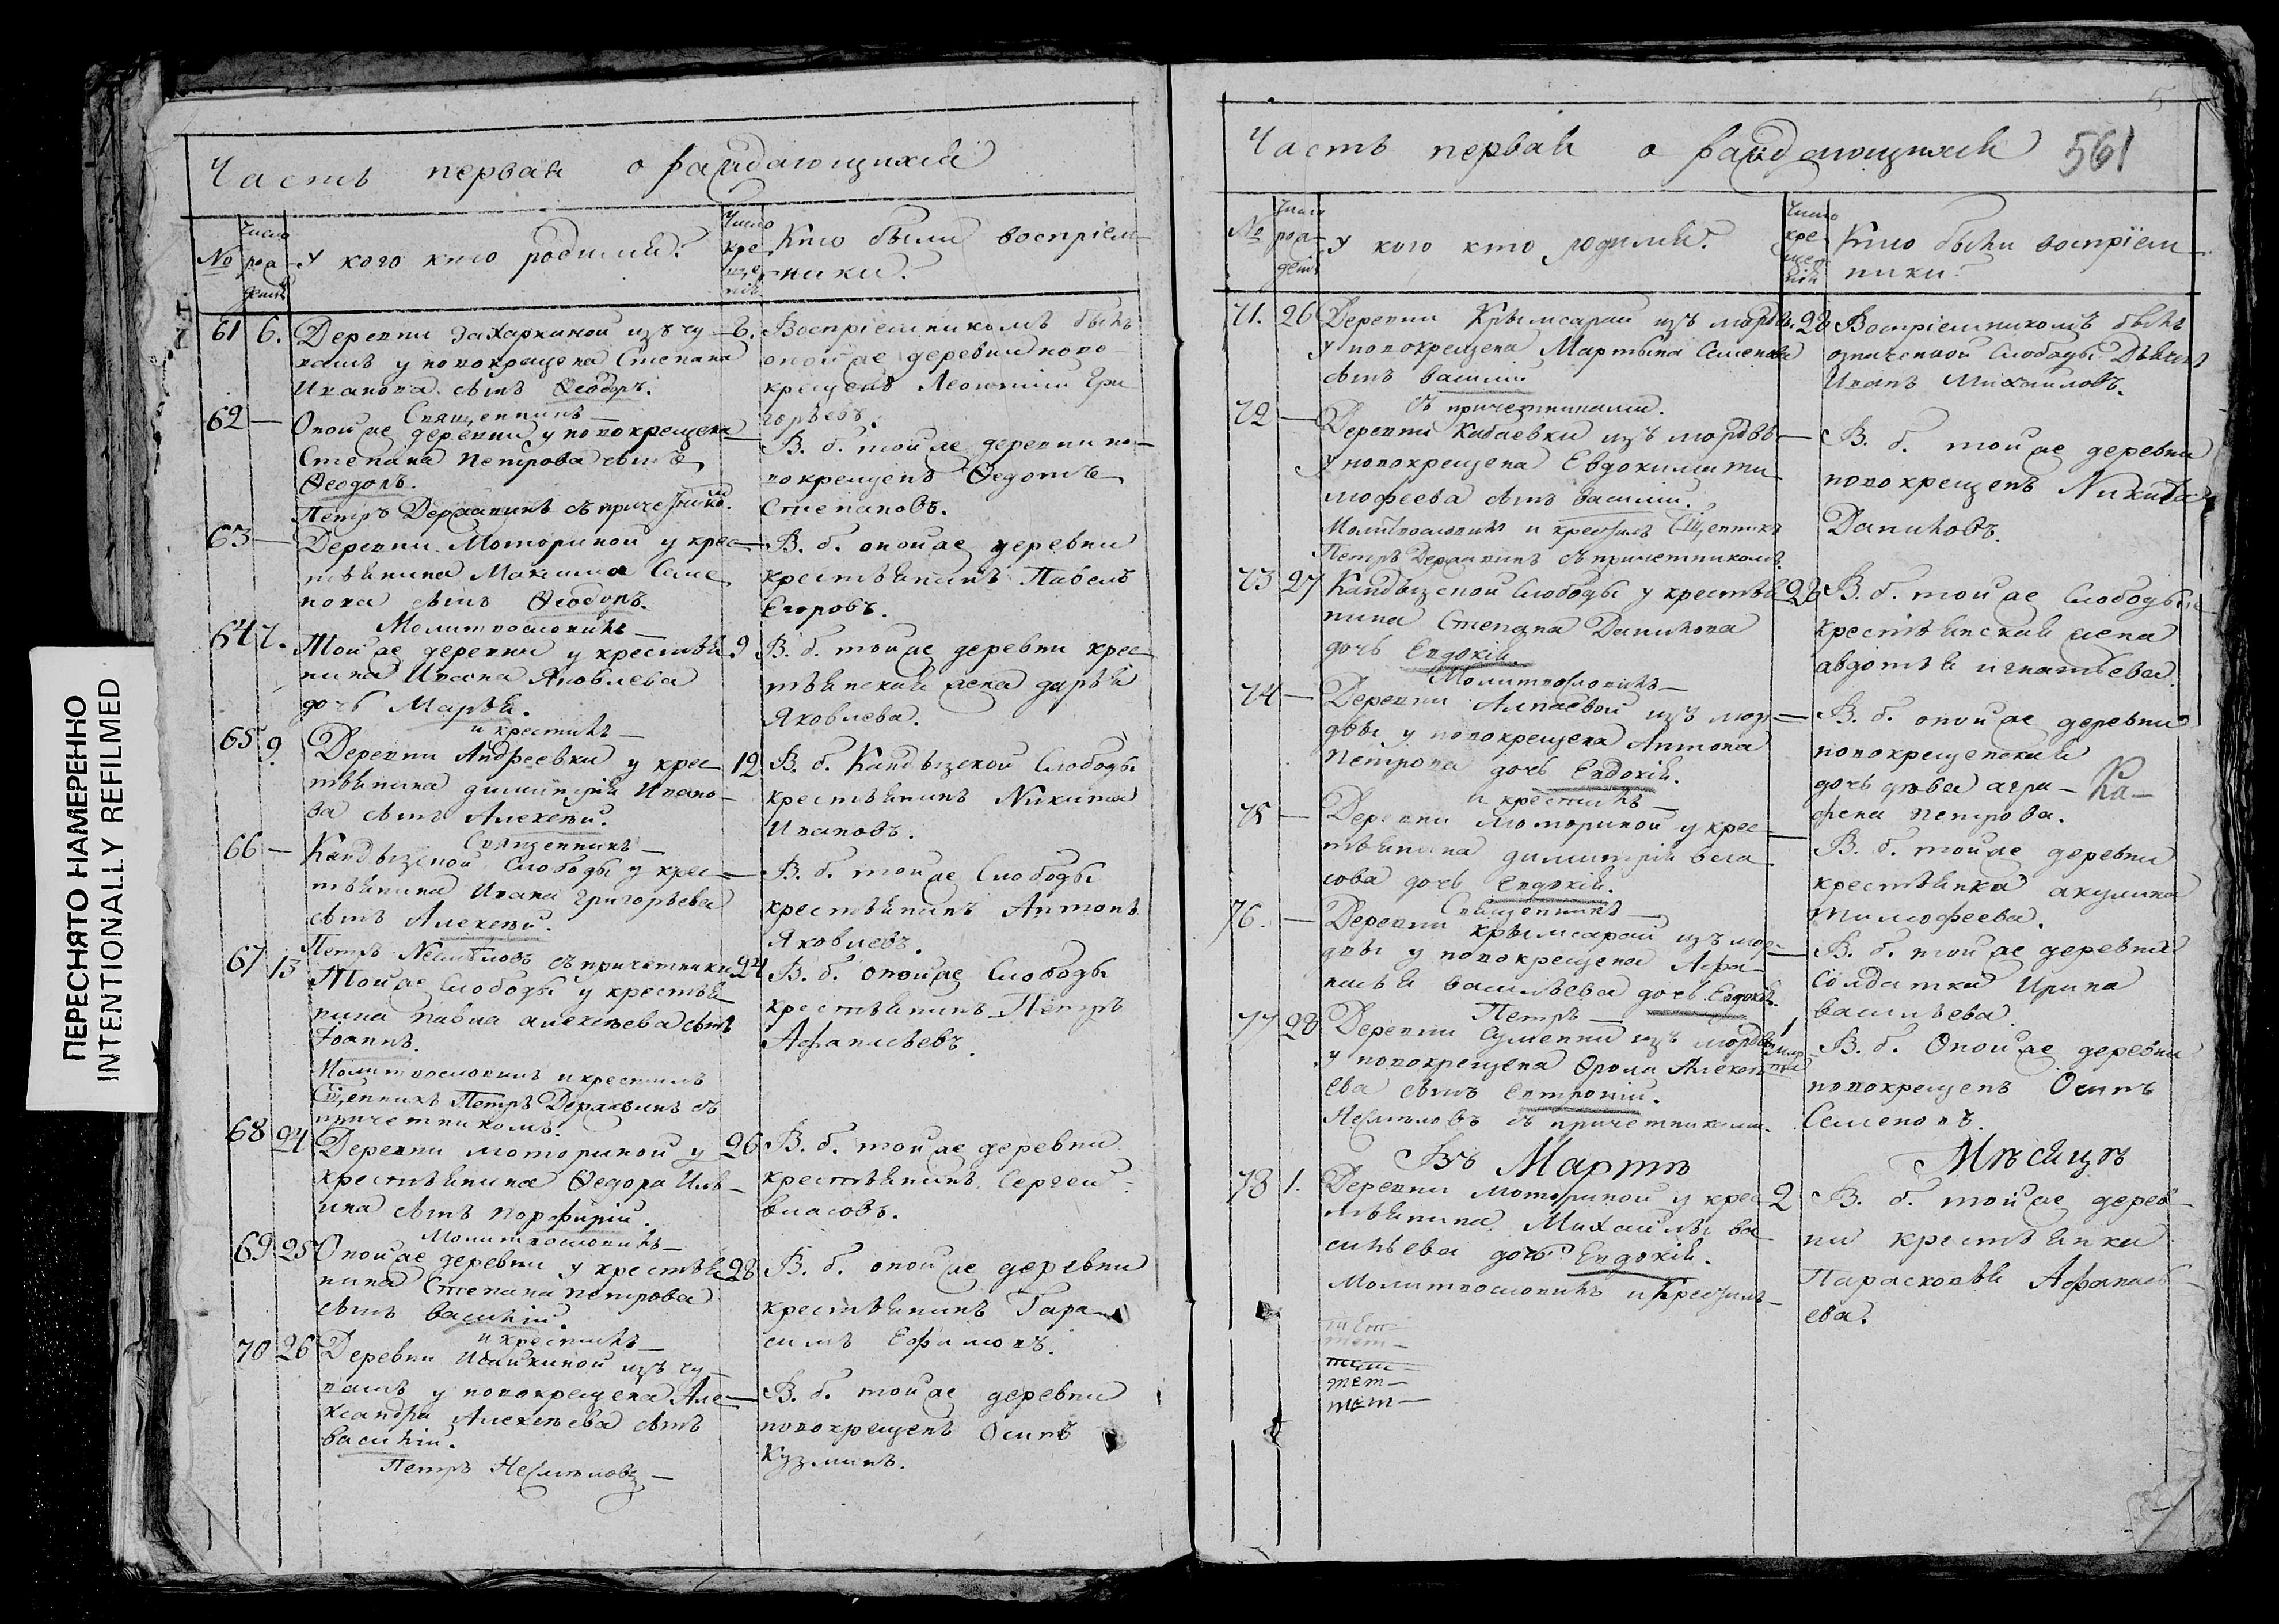 ПЕРЕСНЯТО НАМЕРЕННО
INTENTIONALLY REFILMED
Часть первая о раждающихся
№
Число рождения
У кого кто родился?
Число крещения
Кто были воспріем-
ники?
61 6. Деревни Захаркиной изъ чу-
вашъ у новокрещена Степана
Иванова сынъ Ѳеодоръ.
Священникъ
6. Воспріемникомъ былъ
оной же деревни ново-
крещенъ Леонтій Гри
горьевъ.
62 — Оной же деревни у новокрещена
Степана Петрова сынъ
Ѳеодоръ.
Петръ Державинъ съ причетника
— В. б. той же деревни но-
вокрещенъ Ѳедотъ
Степановъ.
63 — Деревни Моториной у крес-
тьянина Максима Семе
нова сынъ Ѳеодоръ.
Молитвословилъ —
— В. б. оной же деревни
крестьянинъ Павелъ
Егоровъ.
64 7. Той же деревни у крестья
нина Ивана Яковлева
дочь Марья.
и крестилъ —
9 В. б. той же деревни крес-
тьянская жена Дарья
Яковлева.
65 9. Деревни Андреевки у крес-
тьянина Димитрія Ивано-
ва сынъ Алексей.
Священникъ —
12 В. б. Кандызской Слободы
крестьянинъ Никита
Ивановъ.
66 — Кандызской Слободы у крес-
тьянина Ивана Григорьева
сынъ Алексей.
Петръ Несмѣловъ съ причетники
— В. б. той же Слободы
крестьянинъ Антонъ
Яковлевъ.
67 13 Той же Слободы у крестья
нина Павла Алексѣева сынъ
Іоаннъ.
Молитвословилъ и крестилъ
Сщенникъ Петръ Державинъ съ
причетникомъ.
24 В. б. оной же Слободы
крестьянинъ Петръ
Афанасьевъ.
68 24 Деревни Моториной у
крестьянина Ѳедора Иль-
ина сынъ Порфирій.
Молитвословилъ —
26 В. б. той же деревни
крестьянинъ Сергей
Власовъ.
69 25 Оной же деревни у крестья
нина Степана Петрова
сынъ Василій.
и крестилъ —
28 В. б. оной же деревни
крестьянинъ Гара-
симъ Ефимовъ.
70 26 Деревни Исайкиной изъ чу-
вашъ у новокрещена Але-
ксандра Алексѣева сынъ
Василій.
Петръ Несмѣловъ —
— В. б. той же деревни
новокрещенъ Осипъ
Кузминъ.
Часть первая о раждающихся 561
№
Число рождения
У кого кто родился?
Число крещения
Кто были воспріем-
ники?
71. 26 Деревни Крымсарай изъ мордвы
у новокрещена Мартына Семенова
сынъ Василій
съ причетниками.
28 Воспріемникомъ былъ
означенной Слободы Дьячекъ
Иванъ Михайловъ.
72 — Деревни Кабаевки изъ мордвы
у новокрещена Евдокима Ти
мофеева сынъ Василій.
Молитвословилъ и крестилъ Сщенникъ
Петръ Державинъ съ причетникомъ
— В. б. той же деревни
новокрещенъ Никита
Даниловъ.
73 27 Кандызской Слободы у крестья
нина Степана Данилова
дочь Евдокія.
Молитвословилъ —
28 В. б. той же Слободы
крестьянская жена
Авдотья Игнатьева.
74 — Деревни Алпаевой изъ мор-
двы у новокрещена Антона
Петрова дочь Евдокія.
и крестилъ —
— В. б. оной же деревни
новокрещенская
дочь дѣва Агра-
фена Петрова.
Ка-
75 — Деревни Моториной у крес-
тьянина Димитрія Вла
сова дочь Евдокія.
Священникъ —
— В. б. той же деревни
крестьянка Акулина
Тимофеева.
76. — Деревни Крымсарай изъ мор-
двы у новокрещена Афа-
насья Васильева дочь Евдокія.
Петръ —
— В. б. той же деревни
Солдатка Ирина
Васильева.
77 28 Деревни Сулеевки изъ мордвы
у новокрещена Фрола Алексѣ
ева сынъ Евтропій.
Несмѣловъ съ причетниками.
1 Мар
та
В. б. Оной же деревни
новокрещенъ Осипъ
Семеновъ.
Въ Мартѣ Мѣсяцѣ
78 1. Деревни Моториной у крес
тьянина Михаила Ва
сильева дочь Евдокія.
Молитвословилъ и крестилъ —
2 В. б. той же дерев-
ни крестьянка
Парасковья Афанась-
ева.
тет —
тет —
тет —